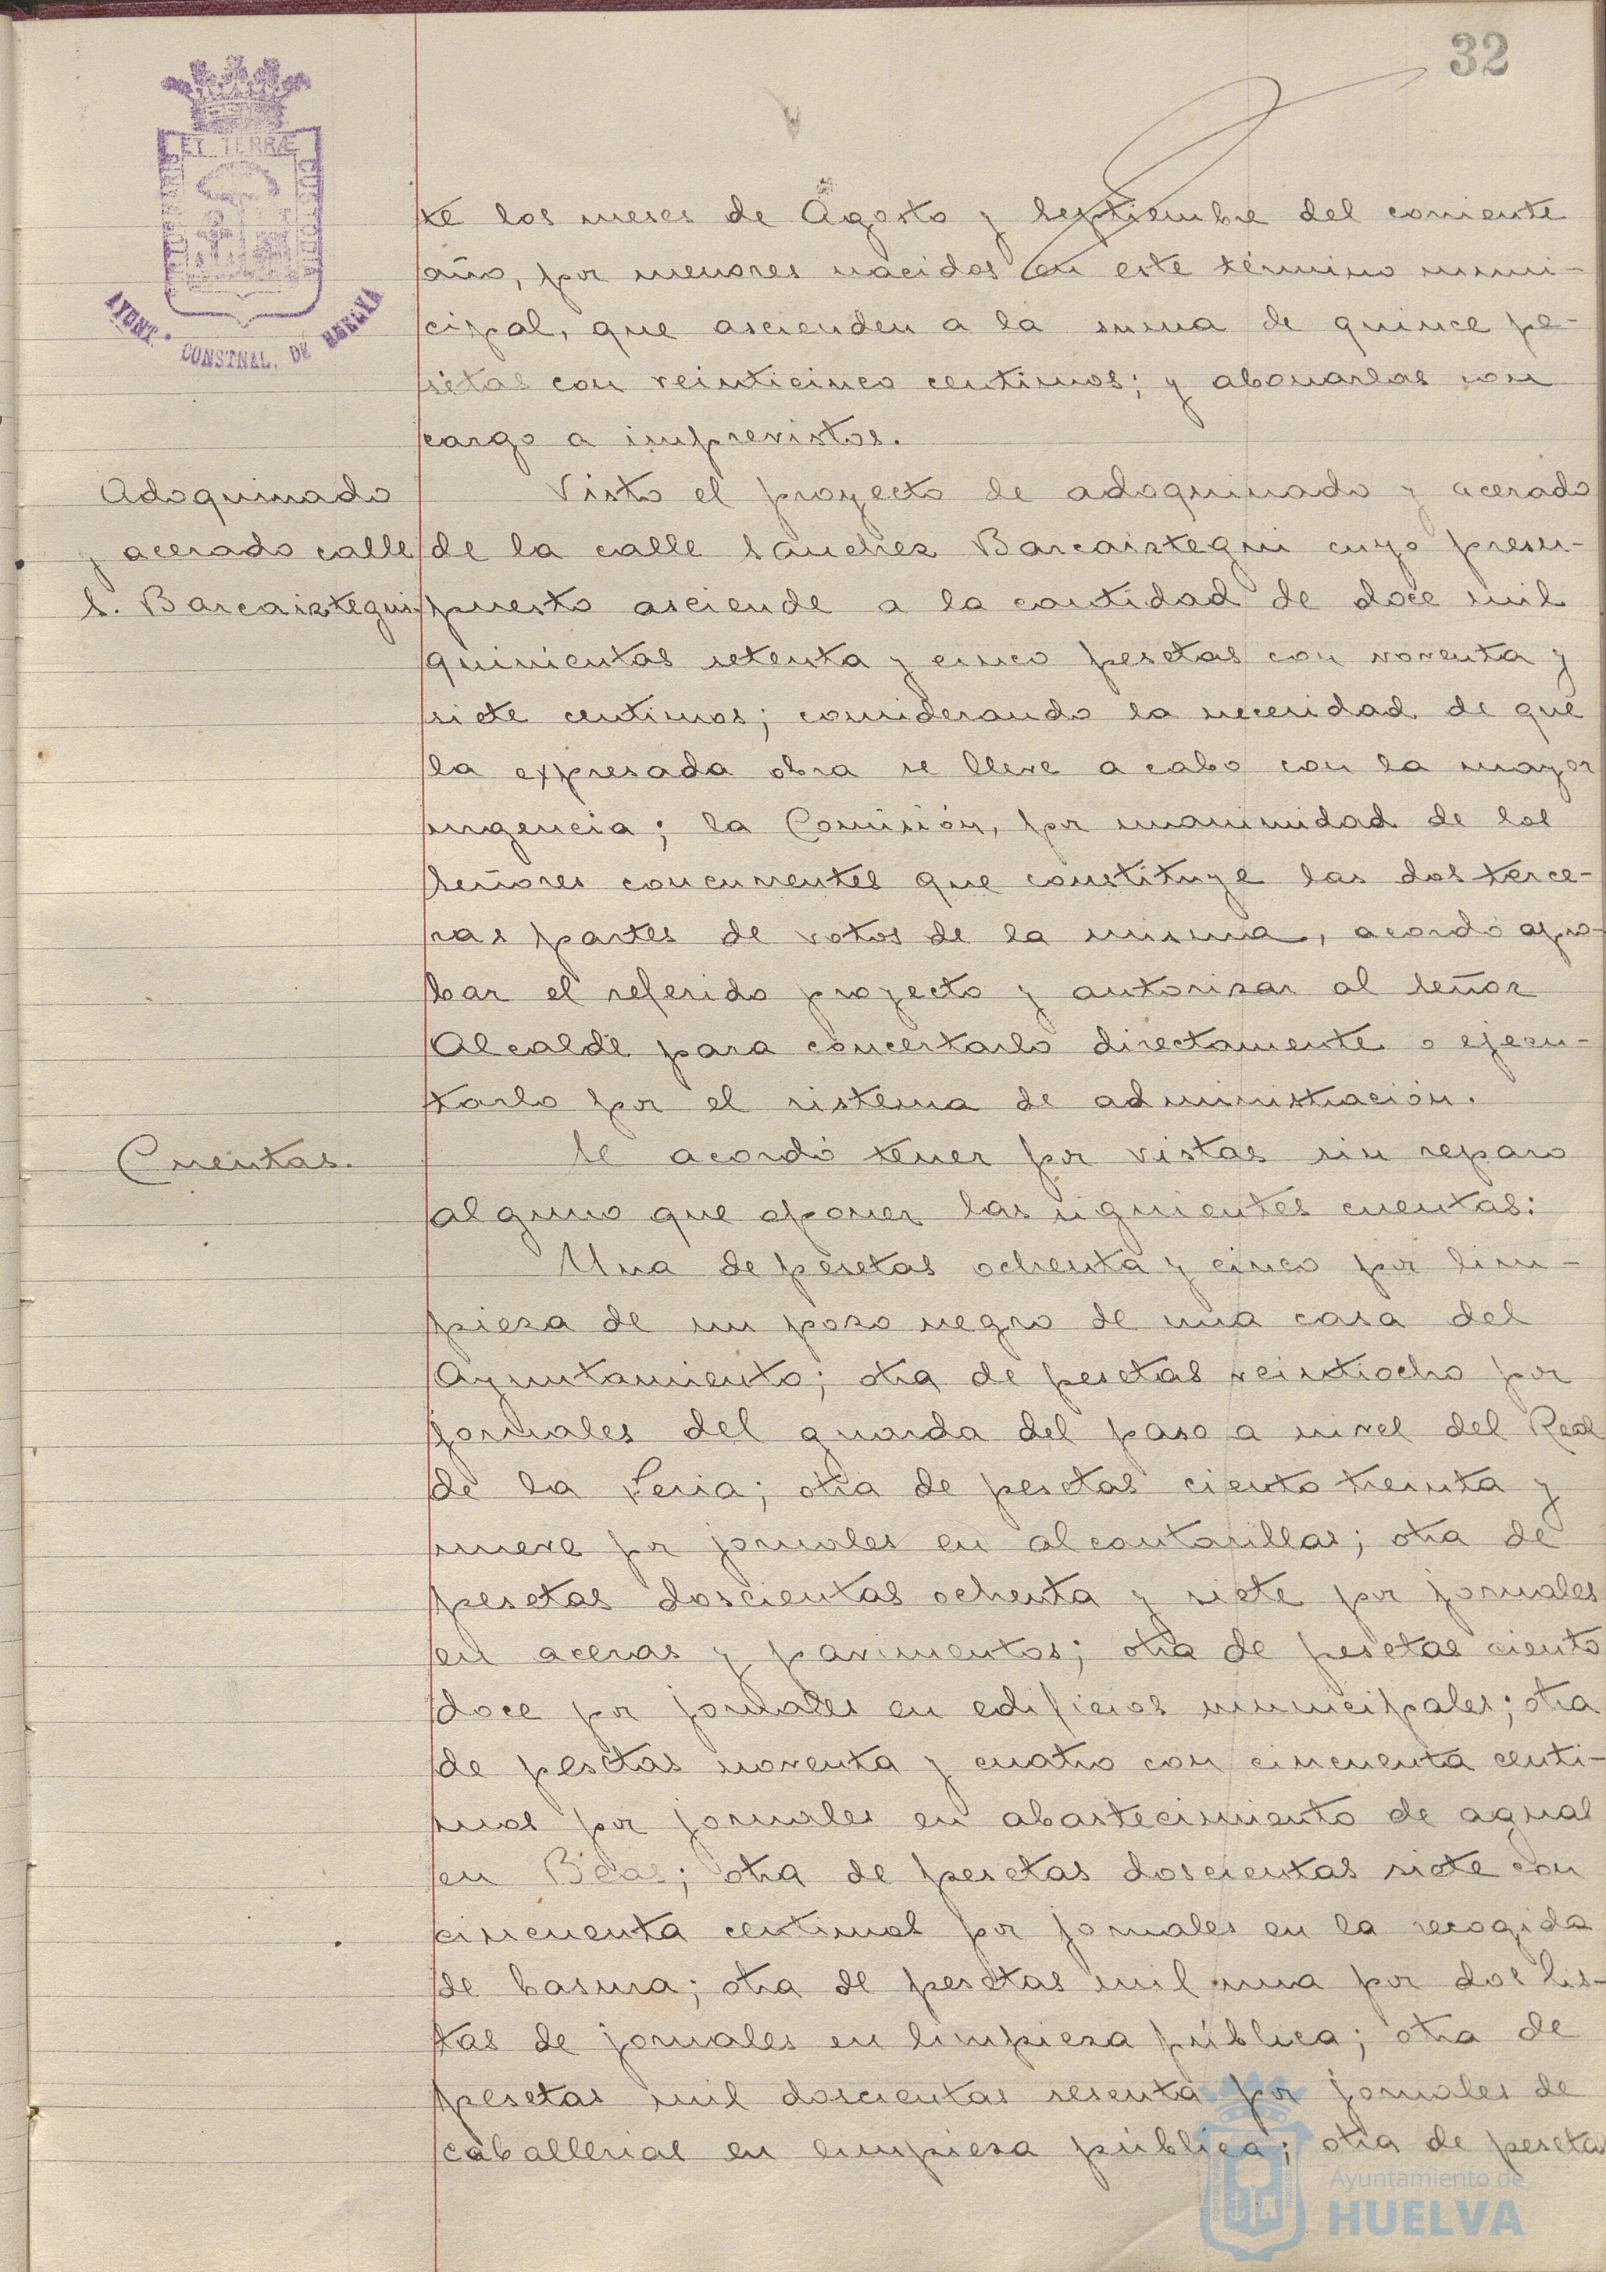 32
ET TERRÆ
AYUNT. CONSTNAL. DE HUELVA
te los meses de Agosto y Septiembre del corriente
año, por menores nacidos en este término muni-
cipal, que ascienden a la suma de quince pe-
setas con veinticinco centimos; y abonarlas con
cargo a imprevistos.
Adoquinado
y acerado calle
S. Barcaiztegui.
Visto el proyecto de adoquinado y acerado
de la calle Sanchez Barcaiztegui cuyo presu-
puesto asciende a la cantidad de doce mil
quinientas setenta y cinco pesetas con noventa y
siete centimos; considerando la necesidad de que
la expresada obra se lleve a cabo con la mayor
urgencia; la Comisión, por unanimidad de los
Señores concurrentes que constituye las dos terce-
ras partes de votos de la misma, acordó apro-
bar el referido proyecto y autorizar al Señor
Alcalde para concertarlo directamente o ejecu-
tarlo por el sistema de administración.
Cuentas.
Se acordó tener por vistas sin reparo
alguno que oponer las siguientes cuentas:
Una de pesetas ochenta y cinco por lim-
pieza de un pozo negro de una casa del
Ayuntamiento; otra de pesetas veintiocho por
jornales del guarda del paso a nivel del Real
de la Feria; otra de pesetas ciento treinta y
nueve por jornales en alcantarillas; otra de
pesetas doscientas ochenta y siete por jornales
en aceras y pavimentos; otra de pesetas ciento
doce por jornales en edificios municipales; otra
de pesetas noventa y cuatro con cincuenta centi-
mos por jornales en abastecimiento de aguas
en Beas; otra de pesetas doscientas siete con
cincuenta centimos por jornales en la recogida
de basura; otra de pesetas mil una por dos lis-
tas de jornales en limpieza pública; otra de
pesetas mil doscientas sesenta por jornales de
caballerias en limpieza pública; otra de pesetas
Ayuntamiento de
HUELVA